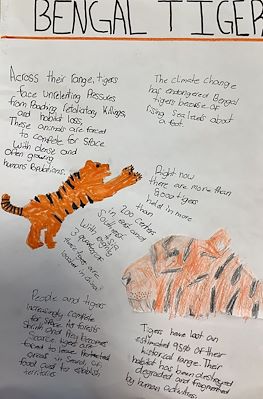 BENGAL TIGER
Across their range, tigers
face unrelenting pressures
from poaching, retaliatory killings,
and habitat loss.
These animals are forced
to compete for space
with dense and
often growing
human populations.
The climate change
has endangered Bengal
tigers because of
rising sea levels about
a foot
Right now
there are more than
8000 tigers
held in more
than
200 centers
in east and
Southeast
Asia
With roughly
3 quarters of
these tigers are
located in China
People and tigers
increasingly compete
for space. As forests
shrink and prey becomes
scarce tigers are
forced to leave
areas in search of
food and to establish
territories
Tigers have lost an
estimated 95% of their
historical range. Their
habitat has been destroyed
degraded and fragmented
by human activities.